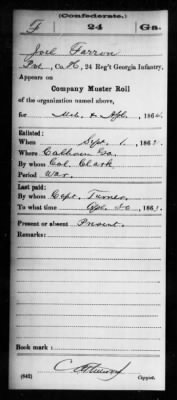 (Confederate.)
F 24 Ga.
Joel Farron
Pvt., Co. H, 24 Reg't Georgia Infantry.
Appears on
Company Muster Roll
of the organization named above,
for Mch. & Apl., 1864.
Enlisted:
When Sept. 1, 186
Where Calhoun Ga.
By whom Col. Clark
Period War.
Last paid:
By whom Capt. Turner
To what time 186
Present or absent Present.
Remarks:
Book mark:
(642) Copyist.